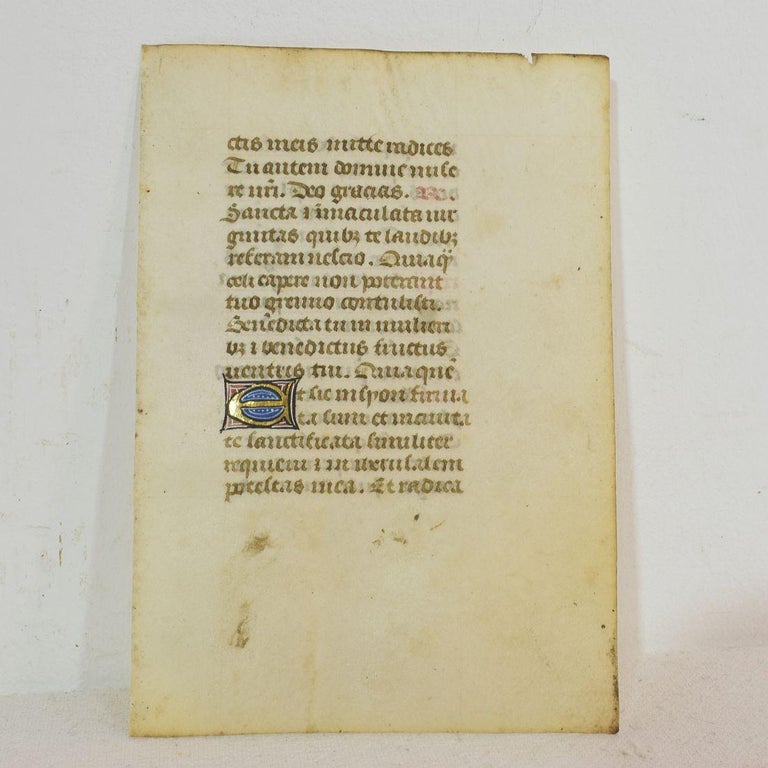 ctis meis mitte radices
Tu autem domine mise
re nr̃i. Deo gracias. R̃.
Sancta i ĩmaculata vir
ginitas quibꝫ te laudibꝫ
referam nescio. Quia q̃
celi capere non poterant
tuo gremio contulisti.
Benẽdicta tu in mulieri
bꝫ i benedictus fructus
ventris tui. Quia quẽ
Et sic in syon firma
ta sum et in civita
te sanctificata similiter
requievi i in iherusalem
potestas mea. Et radica